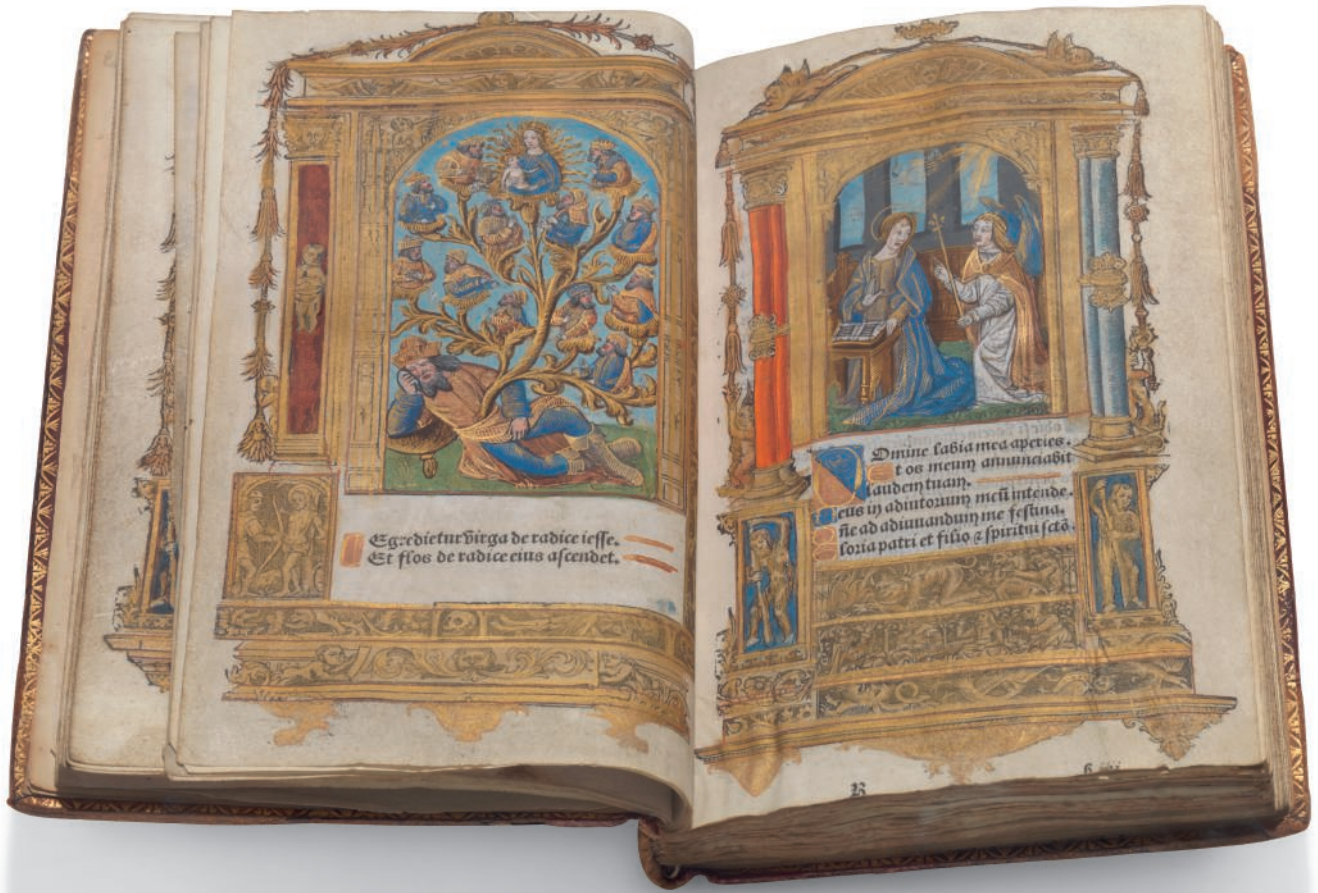 Egredietur virga de radice iesse.
Et flos de radice eius ascendet.
Domine labia mea aperies.
Et os meum annunciabit
laudem tuam.
Deus in adiutorium meū intende.
ñe ad adiuuandum me festina.
Gloria patri et filio & spiritui sctō.
B